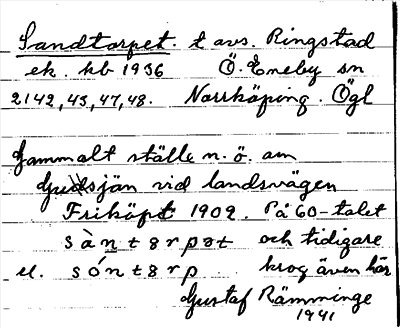 Sandtorpet. t avs. Ringstad
ek. kb 1936 Ö. Eneby sn
2142,43,47,48. Norrköping. Ögl
Gammalt ställe n.ö. om
Gudsjön vid landsvägen
Friköpt 1902. På 60-talet
sàntɜrpət och tidigare
el. sóntɜrp krog även här
Gustaf Rämminge
1941